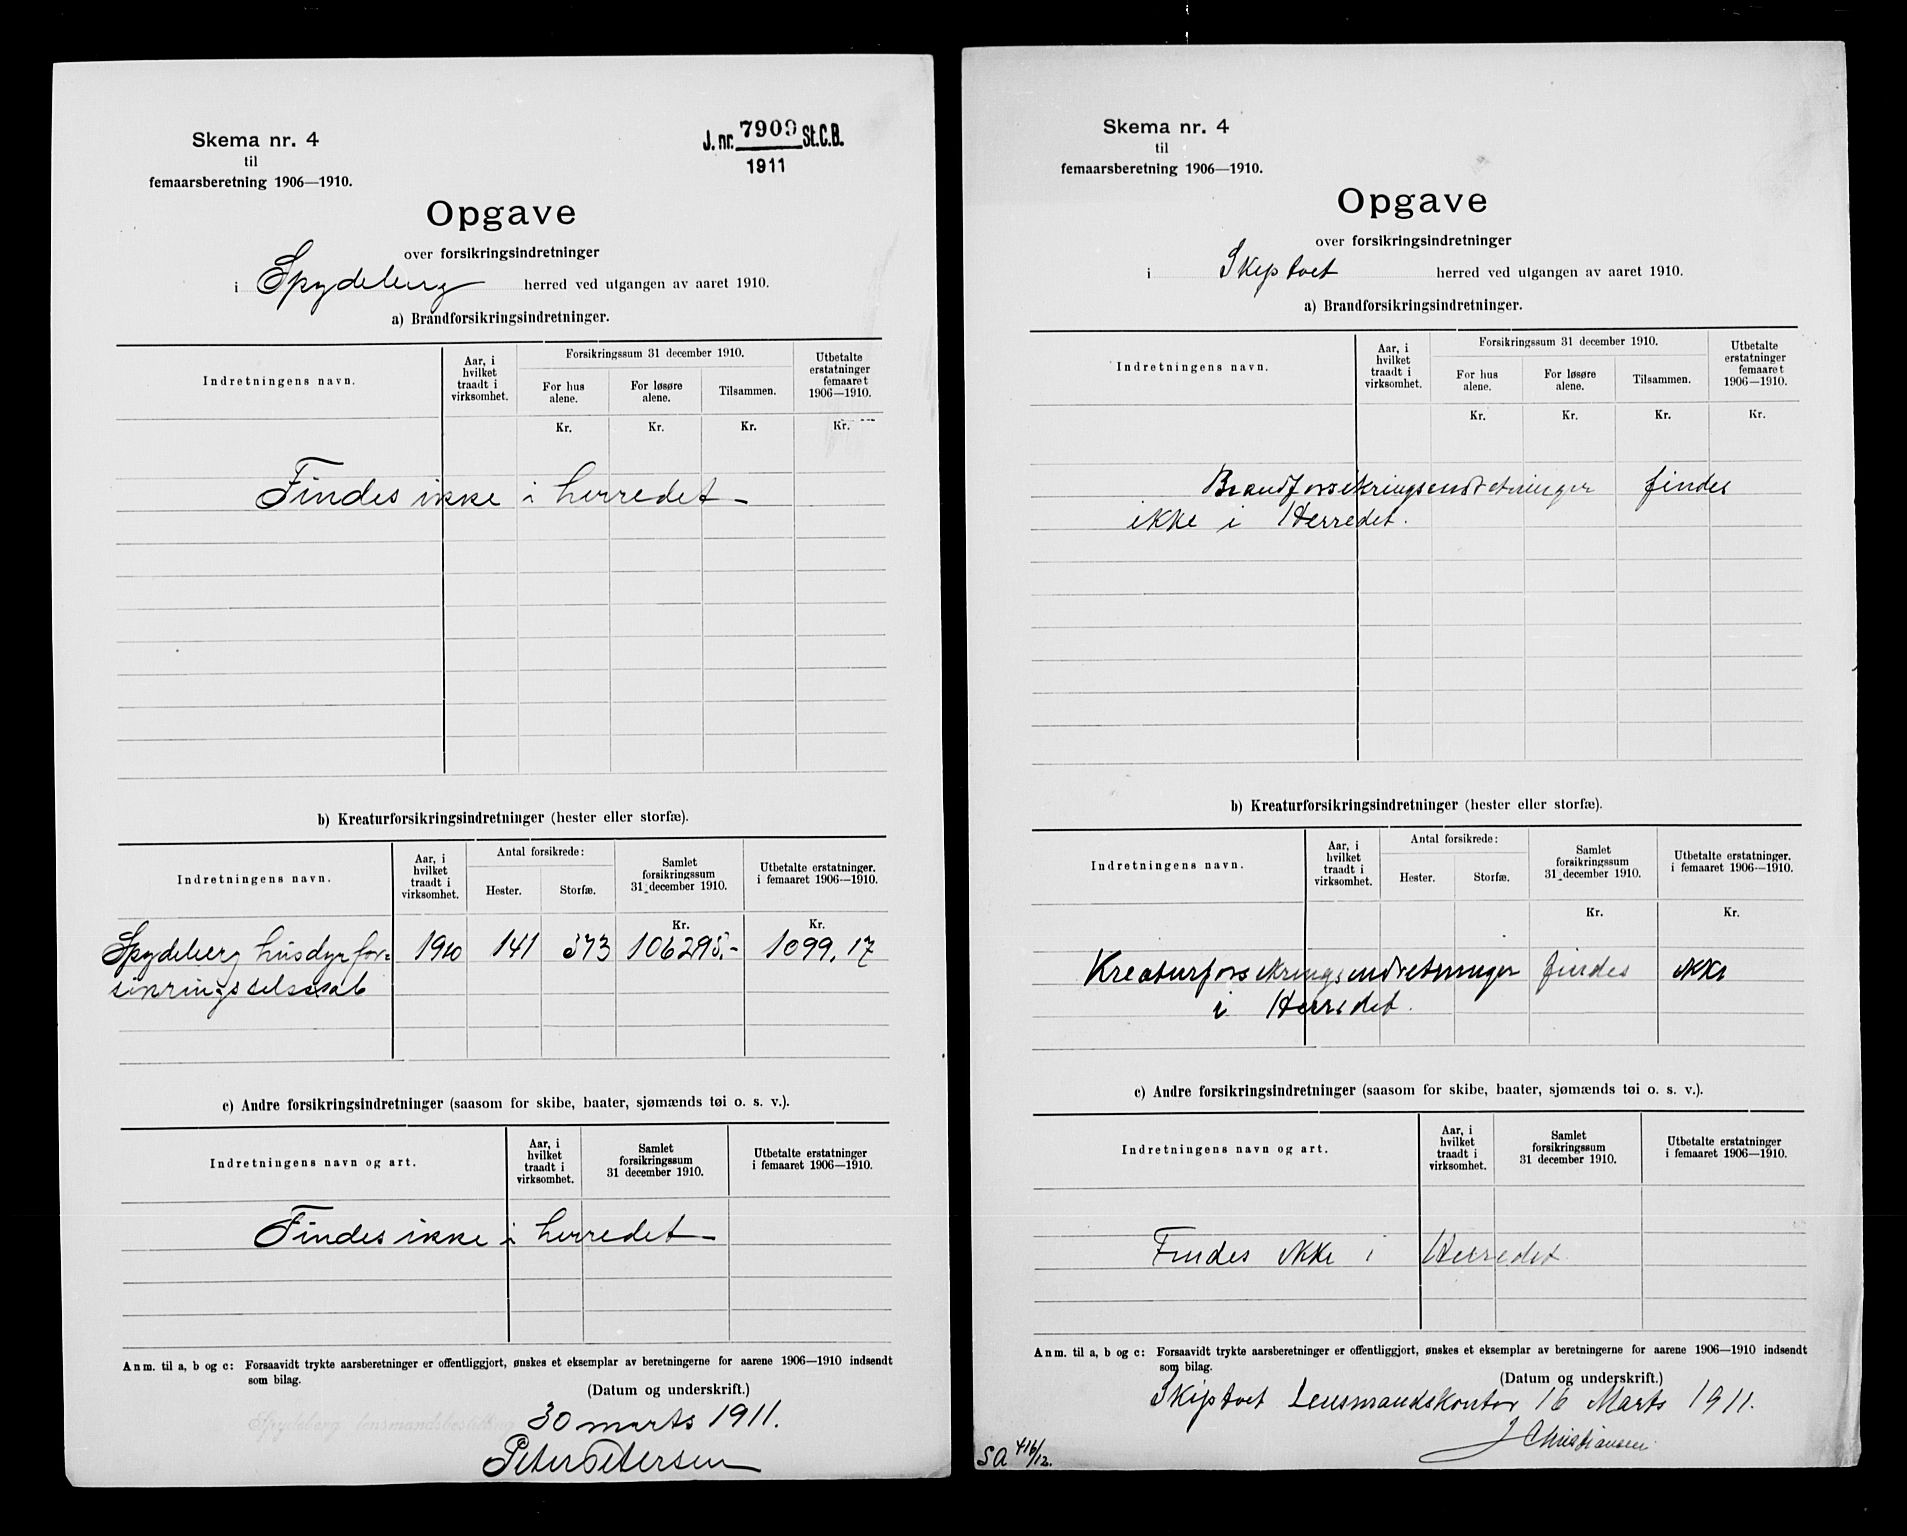 Skema nr. 4
til
femaarsberetning 1906—1910.
J. nr. 7909 St.C.B.
1911
Opgave
over forsikringsindretninger
i Spydeberg herred ved utgangen av aaret 1910.
a) Brandforsikringsindretninger.
Indretningens navn.
Aar, i
hvilket
traadt i
virksomhet.
Forsikringssum 31 december 1910.
For hus
alene.
For løsøre
alene.
Tilsammen.
Utbetalte
erstatninger
femaaret
1906—1910.
Kr. Kr. Kr. Kr.
Findes ikke i herredet —
b) Kreaturforsikringsindretninger (hester eller storfæ).
Indretningens navn.
Aar, i
hvilket
traadt i
virksomhet.
Antal forsikrede:
Hester. Storfæ.
Samlet
forsikringssum
31 december 1910.
Utbetalte erstatninger.
i femaaret 1906—1910.
Kr. Kr.
Spydeberg husdyrfor- 1910 141 373 106295.- 1099.17
sikringsselskab
c) Andre forsikringsindretninger (saasom for skibe, baater, sjømænds tøi o. s. v.).
Indretningens navn og art.
Aar, i
hvilket
traadt i
virksomhet.
Samlet
forsikringssum
31 december 1910.
Utbetalte erstatninger
i femaaret 1906—1910.
Findes ikke i herredet —
Anm. til a, b og c: Forsaavidt trykte aarsberetninger er offentliggjort, ønskes et eksemplar av beretningerne for aarene 1906—1910 indsendt
som bilag.
(Datum og underskrift.)
Spydeberg lensmandsbestilling 30 marts 1911.
Peter Petersen
Skema nr. 4
til
femaarsberetning 1906—1910.
Opgave
over forsikringsindretninger
i Skiptvet herred ved utgangen av aaret 1910.
a) Brandforsikringsindretninger.
Indretningens navn.
Aar, i
hvilket
traadt i
virksomhet.
Forsikringssum 31 december 1910.
For hus
alene.
For løsøre
alene.
Tilsammen.
Utbetalte
erstatninger
femaaret
1906—1910.
Kr. Kr. Kr. Kr.
Brandforsikringsindretninger findes
ikke i Herredet.
b) Kreaturforsikringsindretninger (hester eller storfæ).
Indretningens navn.
Aar, i
hvilket
traadt i
virksomhet.
Antal forsikrede:
Hester. Storfæ.
Samlet
forsikringssum
31 december 1910.
Utbetalte erstatninger.
i femaaret 1906—1910.
Kr. Kr.
Kreaturforsikringsindretninger findes ikke
i Herredet.
c) Andre forsikringsindretninger (saasom for skibe, baater, sjømænds tøi o. s. v.).
Indretningens navn og art.
Aar, i
hvilket
traadt i
virksomhet.
Samlet
forsikringssum
31 december 1910.
Utbetalte erstatninger
i femaaret 1906—1910.
Findes ikke i Herredet.
Anm. til a, b og c: Forsaavidt trykte aarsberetninger er offentliggjort, ønskes et eksemplar av beretningerne for aarene 1906—1910 indsendt
som bilag.
(Datum og underskrift.)
Skiptvet Lensmandskontor 16 Marts 1911.
J Christiansen
SA 416/12.